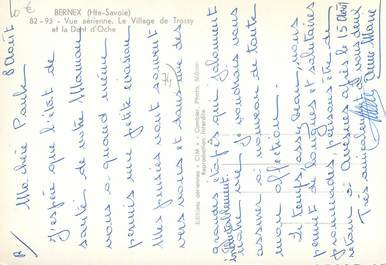 BERNEX (Hte-Savoie)
82-93 - Vue aérienne. Le Village de Trossy
et la Dent d'Oche
8 Août
Ma chère Paule
J'espère que l'état de
santé de votre Maman
vous a quand même
permis une petite évasion
Mes pensées vont souvent
vers vous et suivent des
grandes étapes qui jalonnent
je voudrais vous
assurer à nouveau de toute
mon affection.
Le temps, assez beau, nous
permet de longues et salutaires
promenades, pensons être de
retour à Avesnes après le 15 Août
Très amicalement à vous deux
Editions aériennes « CIM » - Combier, Photo. Mâcon
Reproduction interdite